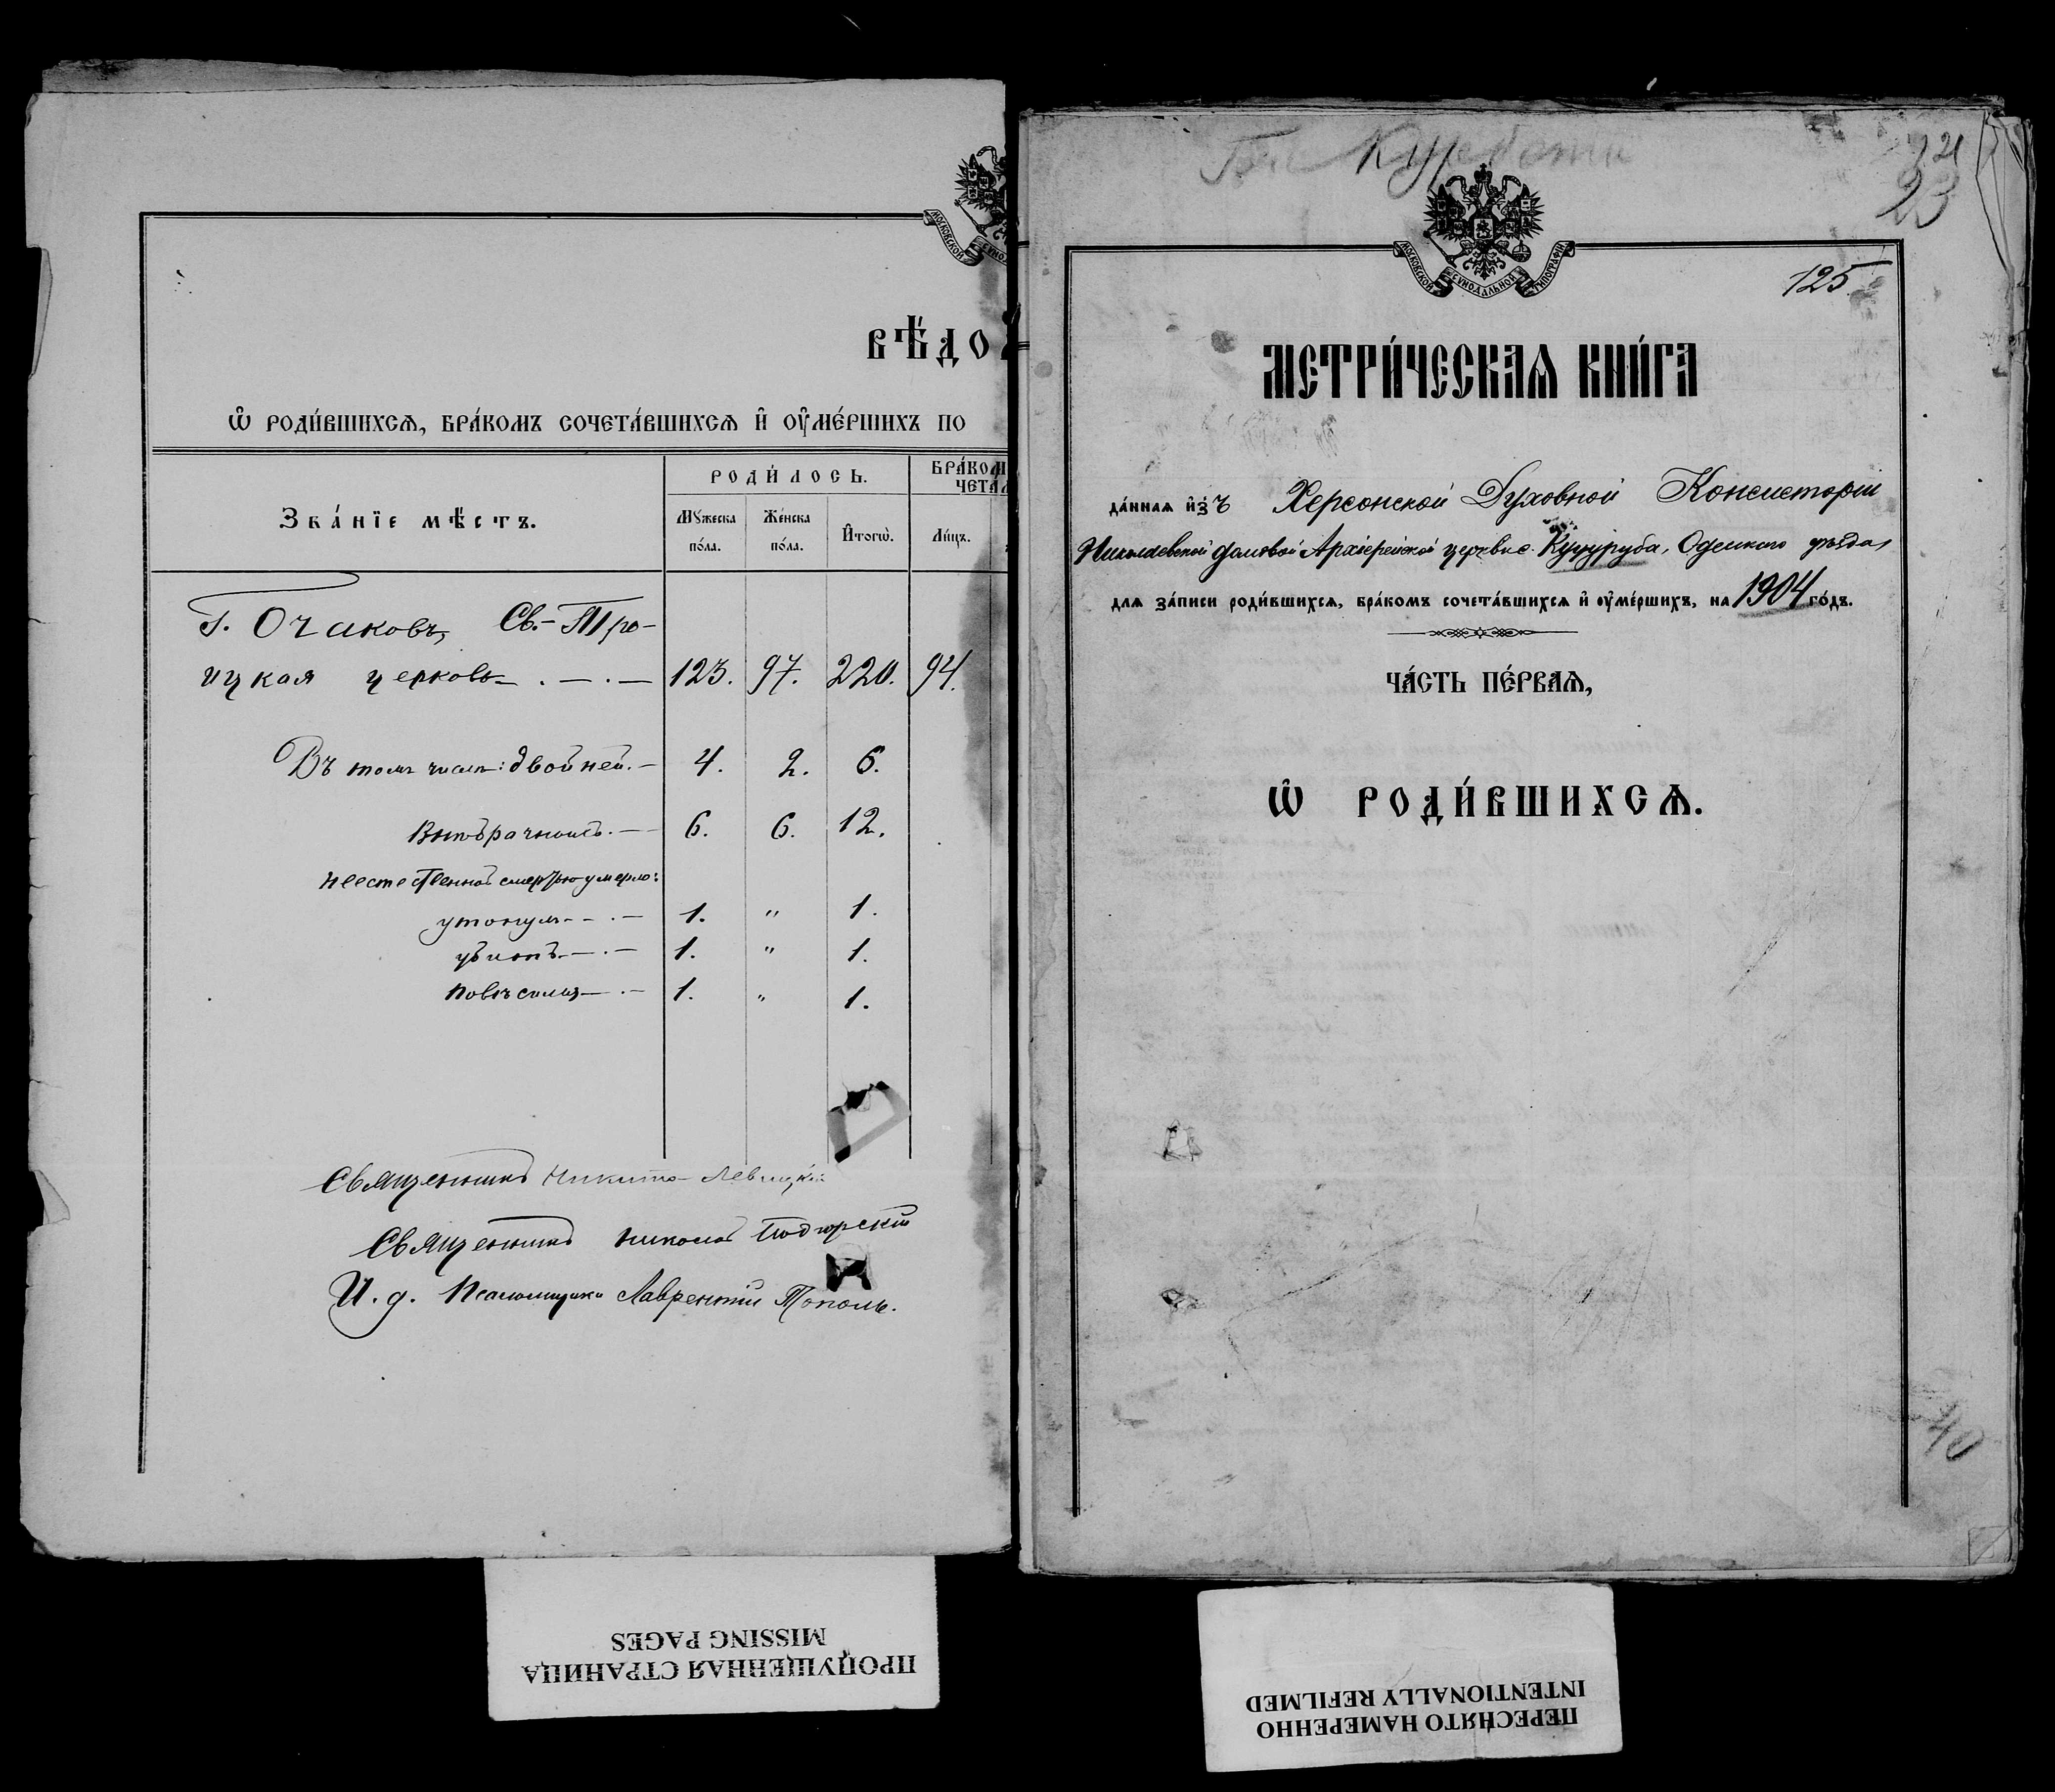 МОСКОВСКОЙ
СѴНОДАЛЬНОЙ
ВѢ́ДО
Ѡ҆ РОДИ́ВШИХСѦ, БРА́КОМЪ СОЧЕТА́ВШИХСѦ И҆ ОУ҆МЕ́РШИХЪ ПО
Зва́нїе мѣ́стъ.
РОДИ́ЛОСЬ.
БРА́КОМ
ЧЕТА́
Мꙋ́жеска по́ла.
Же́нска по́ла.
И҆тогѡ̀.
Ли́цъ.
Г. Очаковъ, Св.-Тро-
ицкая церковь 123. 97. 220. 94.
Въ томъ числѣ: двойней. 4. 2. 6.
Внѣбрачныхъ. 6. 6. 12.
неестественной смертью умерло:
утонулъ 1. " 1.
убитъ 1. " 1.
повѣсился 1. " 1.
Священникъ Никита Левицкій
Священникъ Николай Подгорскій
И. д. Псаломщика Лаврентій Тополь.
ПРОПУЩЕННАЯ СТРАНИЦА
MISSING PAGES
21
23
МОСКОВСКОЙ СѴНОДАЛЬНОЙ ТИПОГРАФІИ
125
МЕТРИ́ЧЕСКАѦ КНИ́ГА
да́нная и҆зъ Херсонской Духовной Консисторіи
Николаевской домовой Архіерейской церкви с. Куцуруба, Одесскаго уѣзда,
для за́писи роди́вшихся, бра́комъ сочета́вшихся и҆ оу҆ме́ршихъ, на 1904 го́дъ.
ЧА́СТЬ ПЕ́РВАѦ,
Ѡ҆ РОДИ́ВШИХСѦ.
40
ПЕРЕСНЯТО НАМЕРЕННО
INTENTIONALLY REFILMED